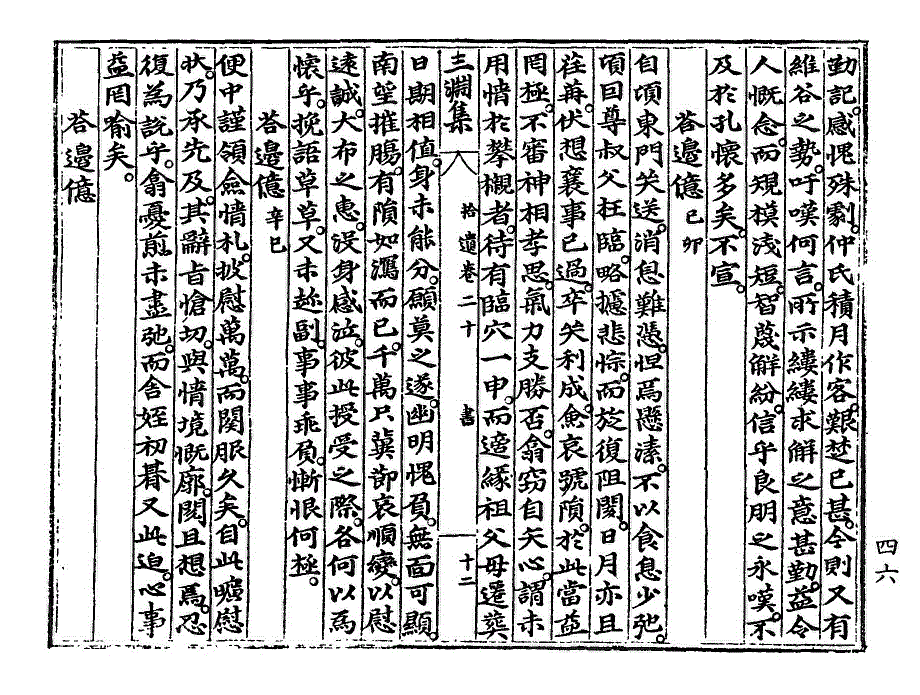 勤記。感愧殊劇。仲氏積月作客。艱楚已甚。今則又有
維谷之勢。吁嘆何言。所示縷縷求解之意甚勤。益令
人慨念。而規模淺短。智蔑解紛。信乎良朋之永嘆。不
及於孔懷多矣。不宣。
答邊億 己卯
自頃東門失送。消息難憑。怛焉懸溸。不以食息少弛。
頃回尊叔父枉臨。略攄悲悰。而旋復阻閡。日月亦且
荏苒。伏想襄事已過。卒哭利成。煢哀號隕。於此當益
罔極。不審神相孝思。氣力支勝否。翕窃自矢心。謂未
用情於攀櫬者。待有臨穴一申。而適緣祖父母遷葬
三淵集
拾遺卷二十 書
十二
日期相值。身未能分。願莫之遂。幽明愧負。無面可顯。
南望摧膓。有隕如瀉而已。千萬只冀節哀順變。以慰
遠誠。大布之惠。沒身感泣。彼此授受之際。各何以爲
懷乎。挽語草草。又未趂副。事事乖負。慚恨何極。
答邊億 辛巳
便中謹領僉情札。披慰萬萬。而闋服久矣。自此曠慰
狀。乃承先及。其辭旨愴切。與情境慨廓。閱且想焉。忍
復爲說乎。翕憂煎未盡弛。而舍姪初朞又此迫。心事
益罔喻矣。
答邊億
四六